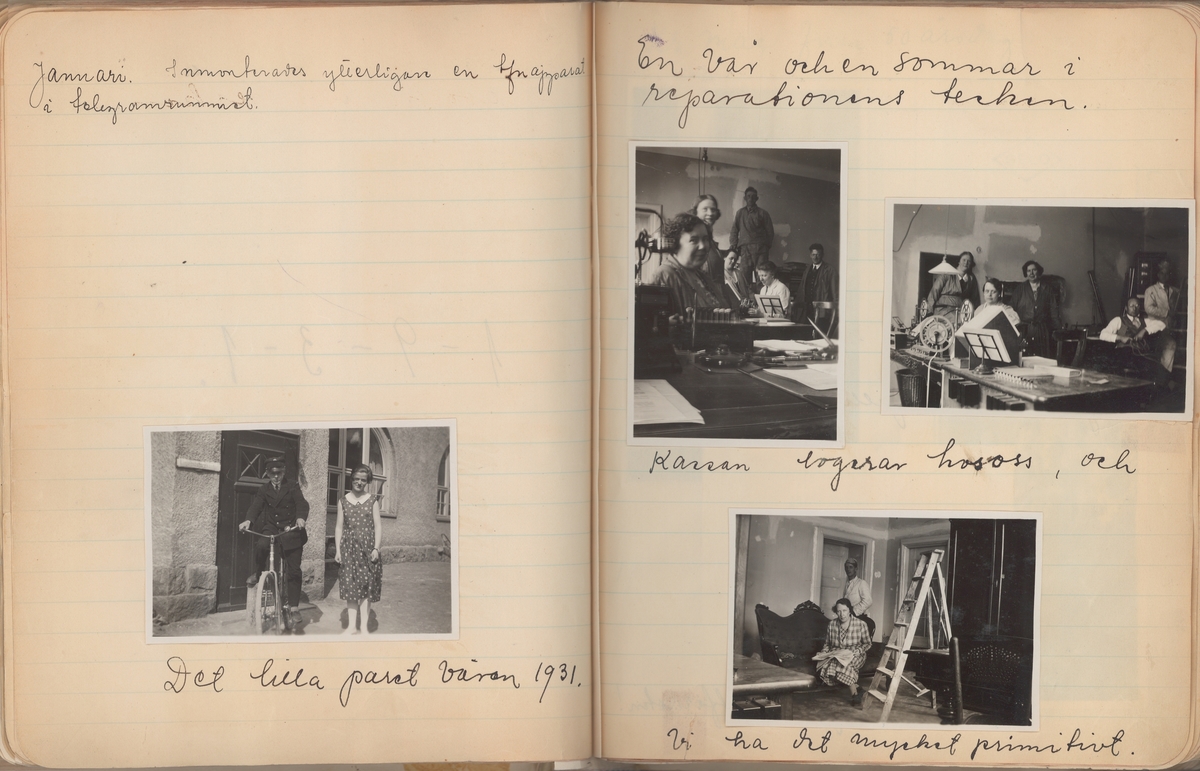 Januari. Inmonterades ytterligare en tfnapparat
i telegramrummet.
Det lilla paret våren 1931.
En vår och en sommar i
reparationens tecken.
Kassan logerar hos oss, och
Vi ha det mycket primitivt.